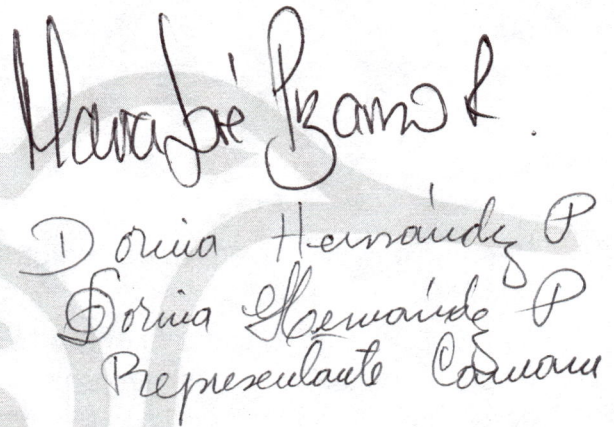 María José Pizarro R.
Dorina Hernández P
Dorina Hernández P
Representante Cámara